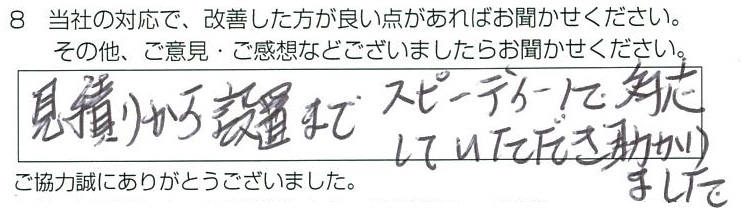 8 当社の対応で、改善した方が良い点があればお聞かせください。
その他、ご意見・ご感想などございましたらお聞かせください。
見積りから設置まで スピーディーで対応
していただき助かり
ました
ご協力誠にありがとうございました。